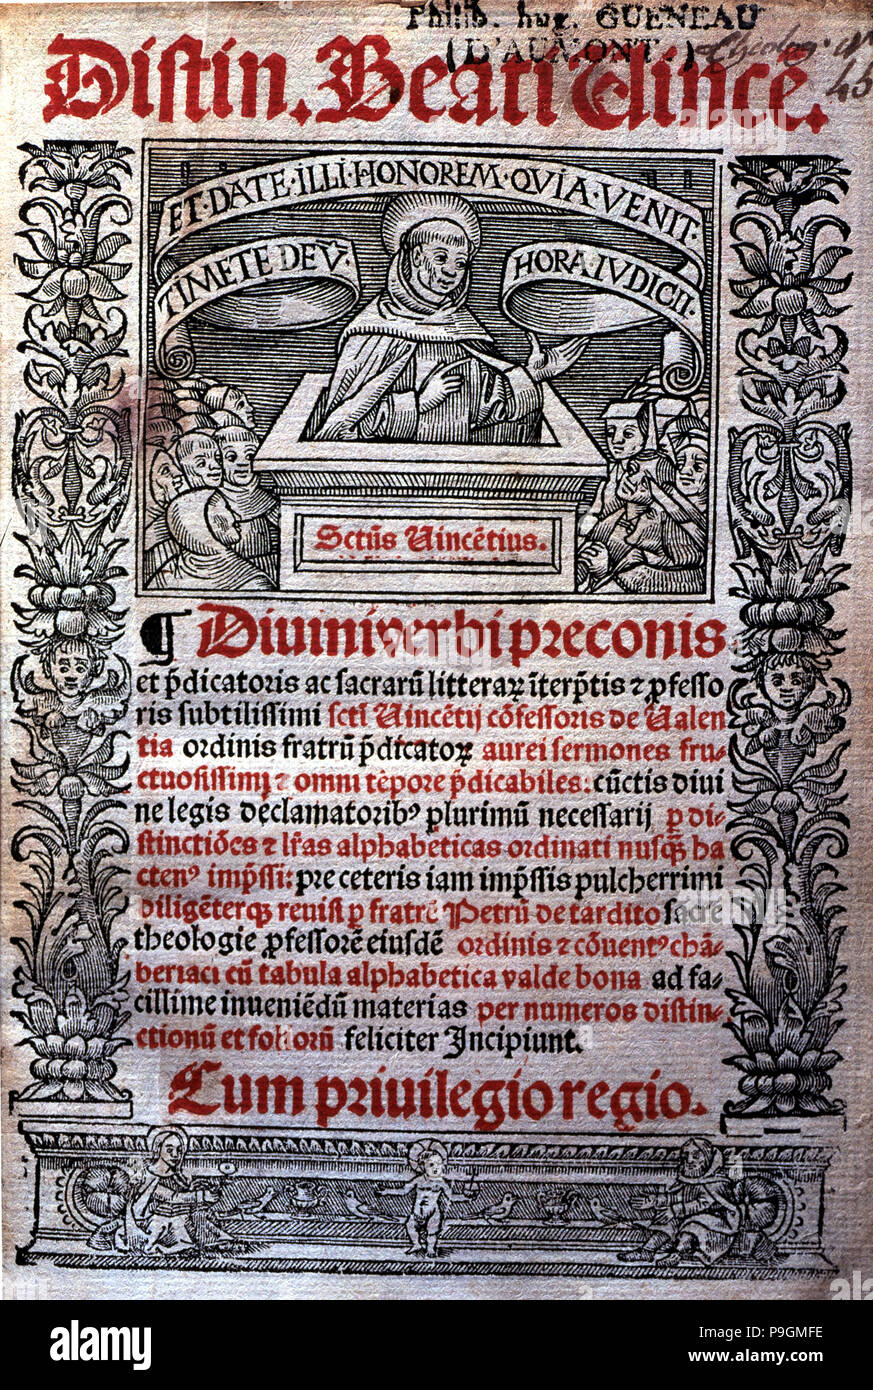 Philib. hug. GUENEAU
(D'AUMONT.)
Distin. Beati Uincẽ.
46
ET·DATE·ILLI·HONOREM·QVIA·VENIT·
TIMETE DEṼ· HORA·IVDICII·
Sctũs Uincẽtius.
¶ Diuini verbi preconis
et p̃dicatoris ac sacrarũ litteraꝝ ĩterp̃tis ⁊ ꝓfesso
ris subtilissimi sctĩ Uincẽtij cõfessoris de Ualen
tia ordinis fratrũ p̃dicatoꝝ aurei sermones fru⸗
ctuosissimi ⁊ omni tẽpore p̃dicabiles: cũctis diui
ne legis declamatoribꝰ plurimũ necessarij ꝑ di⸗
stinctiões ⁊ lr̃as alphabeticas ordinati nusꝙ̃ ha
ctenꝰ imp̃ssi: pre ceteris iam imp̃ssis pulcherrimi
diligẽterqꝫ reuisi ꝑ fratrẽ Petrũ de tardito sacre
theologie ꝓfessorẽ eiusdẽ ordinis ⁊ cõuentꝰ chã⸗
beriaci cũ tabula alphabetica valde bona ad fa⸗
cillime inueniẽdũ materias per numeros distin⸗
ctionũ et foliorũ feliciter Incipiunt.
Cum priuilegio regio.
alamy
Image ID: P9GMFE
www.alamy.com